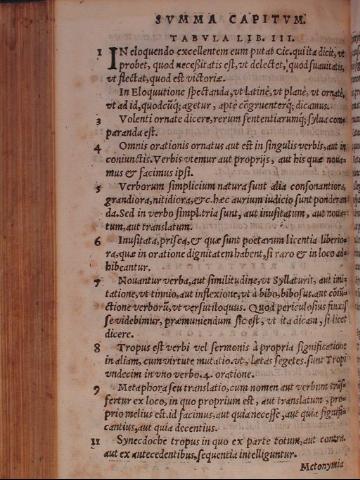 SVMMA CAPITVM.
TABVLA LIB. III.
1 IN eloquendo excellentem eum putat Cic. qui ita dicit, vt
probet, quod necessitatis est, vt delectet, quod suauitatis,
vt flectat, quod est victoriæ.
In Eloquutione spectanda, vt Latinè, vt planè, vt ornatè,
vt ad id, quodcūq; agetur, aptè cōgruenterq; dicamus.
3 Volenti ornate dicere, rerum sententiarumq; sylua com-
paranda est.
4 Omnis orationis ornatus aut est in singulis verbis, aut in
coniunctis. Verbis vtemur aut proprijs, aut his quæ noua-
mus & facimus ipsi.
5 Verborum simplicium natura sunt alia consonantiora,
grandiora, nitidiora, &c. hæc aurium iudicio sunt ponderan
da. Sed in verbo simpl. tria sunt, aut inusitatum, aut noua-
tum, aut translatum.
6 Inusitata, prisca, & quæ sunt poetarum licentia liberio-
ra, quæ in oratione dignitatem habent, si raro & in loco ad-
hibeantur.
7 Nouantur verba, aut similitudine, vt Syllaturit, aut imi-
tatione, vt tinnio, aut inflexione, vt à bibo, bibosus, aut cōiū-
ctione verborū, vt versutiloquus. Quod periculosius finxis
se videbimur, præmuniendum sic est, vt ita dicam, si licet
dicere.
8 Tropus est verbi vel sermonis à propria significatione
in aliam, cum virtute mutatio. vt, lætas segetes. sunt Tropi
vndecim in vno verbo. 4. oratione.
9 Metaphora seu translatio, cum nomen aut verbum trās-
fertur ex loco, in quo proprium est, aut translatum, pro-
prio melius est. id facimus, aut quia necesse, aut quia signifi-
cantius, aut quia decentius.
11 Synecdoche tropus in quo ex parte totum, aut contra.
aut ex antecedentibus, sequentia intelliguntur.
Metonymia